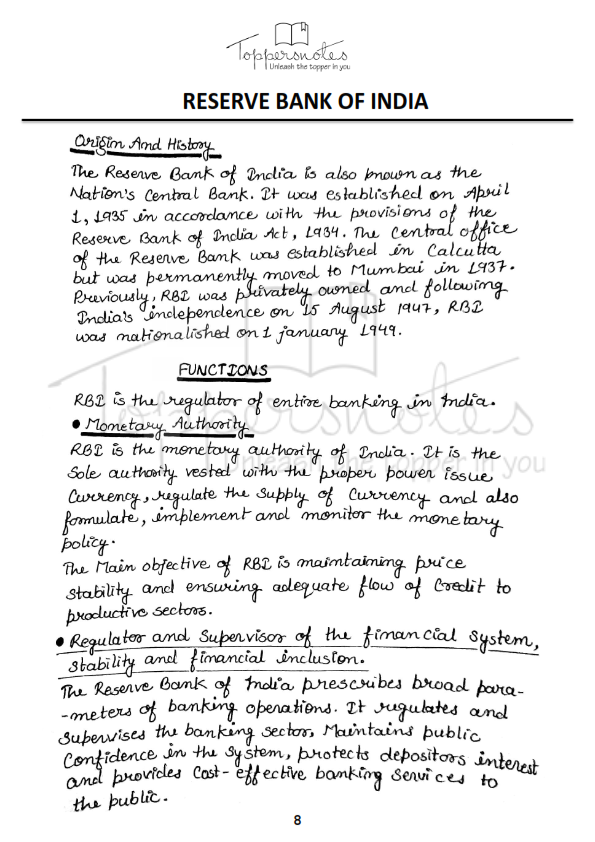 Toppersnotes
Unleash the topper in you
RESERVE BANK OF INDIA
Origin And History
The Reserve Bank of India is also known as the
Nation's Central Bank. It was established on April
1, 1935 in accordance with the provisions of the
Reserve Bank of India Act, 1934. The Central office
of the Reserve Bank was established in Calcutta
but was permanently moved to Mumbai in 1937.
Previously, RBI was privately owned and following
India's independence on 15 August 1947, RBI
was nationalished on 1 january 1949.
FUNCTIONS
RBI is the regulator of entire banking in India.
• Monetary Authority
RBI is the monetary authority of India. It is the
Sole authority vested with the proper power issue
Currency, regulate the supply of Currency and also
formulate, implement and monitor the monetary
policy.
The Main objective of RBI is maintaining price
stability and ensuring adequate flow of Credit to
productive sectors.
• Regulator and Supervisor of the financial System,
Stability and financial inclusion.
The Reserve Bank of India prescribes broad para-
-meters of banking operations. It regulates and
Supervises the banking sector, Maintains public
Confidence in the System, protects depositors interest
and provides Cost-effective banking services to
the public.
Toppersnotes
Unleash the topper in you
8